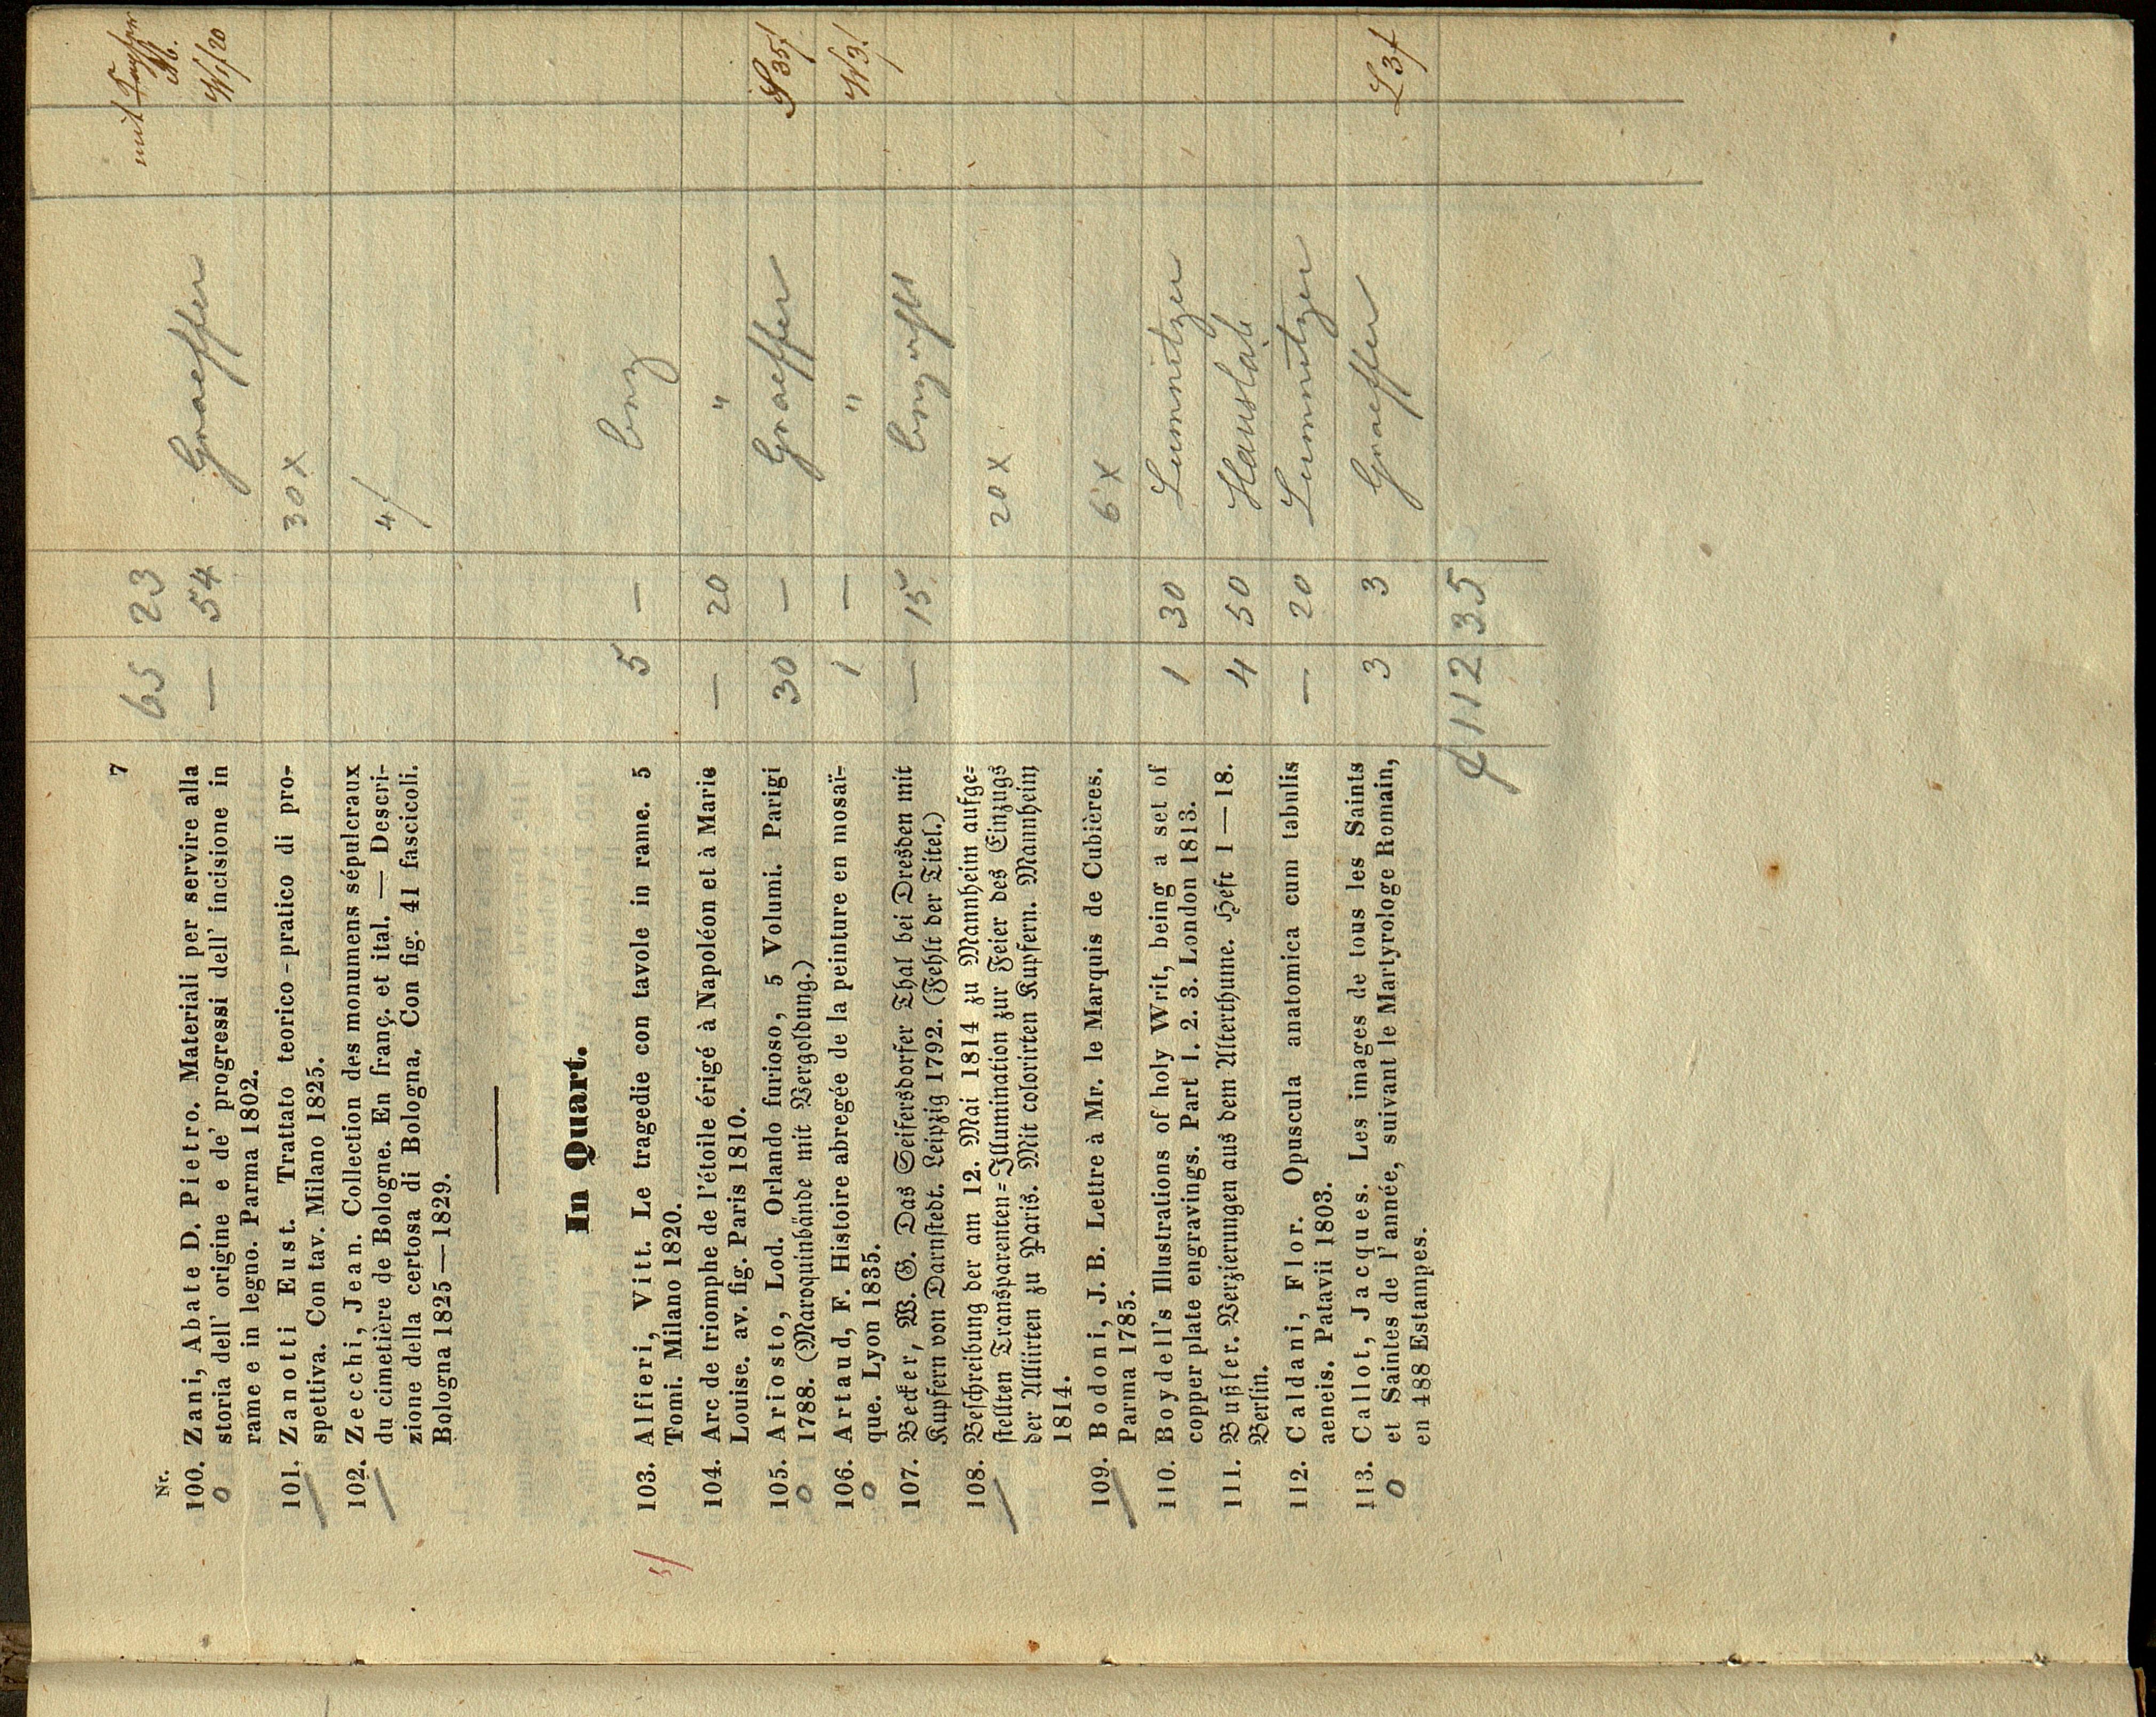 7
Nr.
65 23
mit
100. Zani, Abate D. Pietro. Materiali per servire alla
storia dell' origine e de' progressi dell' incisione in
rame e in legno. Parma 1802.
— 54 Graeffer
101. Zanotti Eust. Trattato teorico-pratico di pro-
spettiva. Con tav. Milano 1825.
30 x
102. Zecchi, Jean. Collection des monumens sépulcraux
du cimetière de Bologne. En franç. et ital. — Descri-
zione della certosa di Bologna, Con fig. 41 fascicoli.
Bologna 1825—1829.
4/
In Quart.
103. Alfieri, Vitt. Le tragedie con tavole in rame. 5
Tomi. Milano 1820.
5 —
104. Arc de triomphe de l'étoile érigé à Napoléon et à Marie
Louise. av. fig. Paris 1810.
— 20 "
105. Ariosto, Lod. Orlando furioso, 5 Volumi. Parigi
1788. (Maroquinbände mit Vergoldung.)
30 — Graeffer
106. Artaud, F. Histoire abregée de la peinture en mosaï-
que. Lyon 1835.
1 — "
107. Becker, W. G. Das Seifersdorfer Thal bei Dresden mit
Kupfern von Darnstedt. Leipzig 1792. (Fehlt der Titel.)
— 15
108. Beschreibung der am 12. Mai 1814 zu Mannheim aufge-
stellten Transparenten-Illumination zur Feier des Einzugs
der Alliirten zu Paris. Mit colorirten Kupfern. Mannheim
1814.
20 x
109. Bodoni, J. B. Lettre à Mr. le Marquis de Cubières.
Parma 1785.
6 x
110. Boydell's Illustrations of holy Writ, being a set of
copper plate engravings. Part 1. 2. 3. London 1813.
1 30 Lumnitzer
111. Bußler. Verzierungen aus dem Alterthume. Heft 1—18.
Berlin.
4 50 Hauslab
112. Caldani, Flor. Opuscula anatomica cum tabulis
aeneis. Patavii 1803.
— 20 Lumnitzer
113. Callot, Jacques. Les images de tous les Saints
et Saintes de l'année, suivant le Martyrologe Romain,
en 488 Estampes.
3 3 Graeffer L 3f
112 35